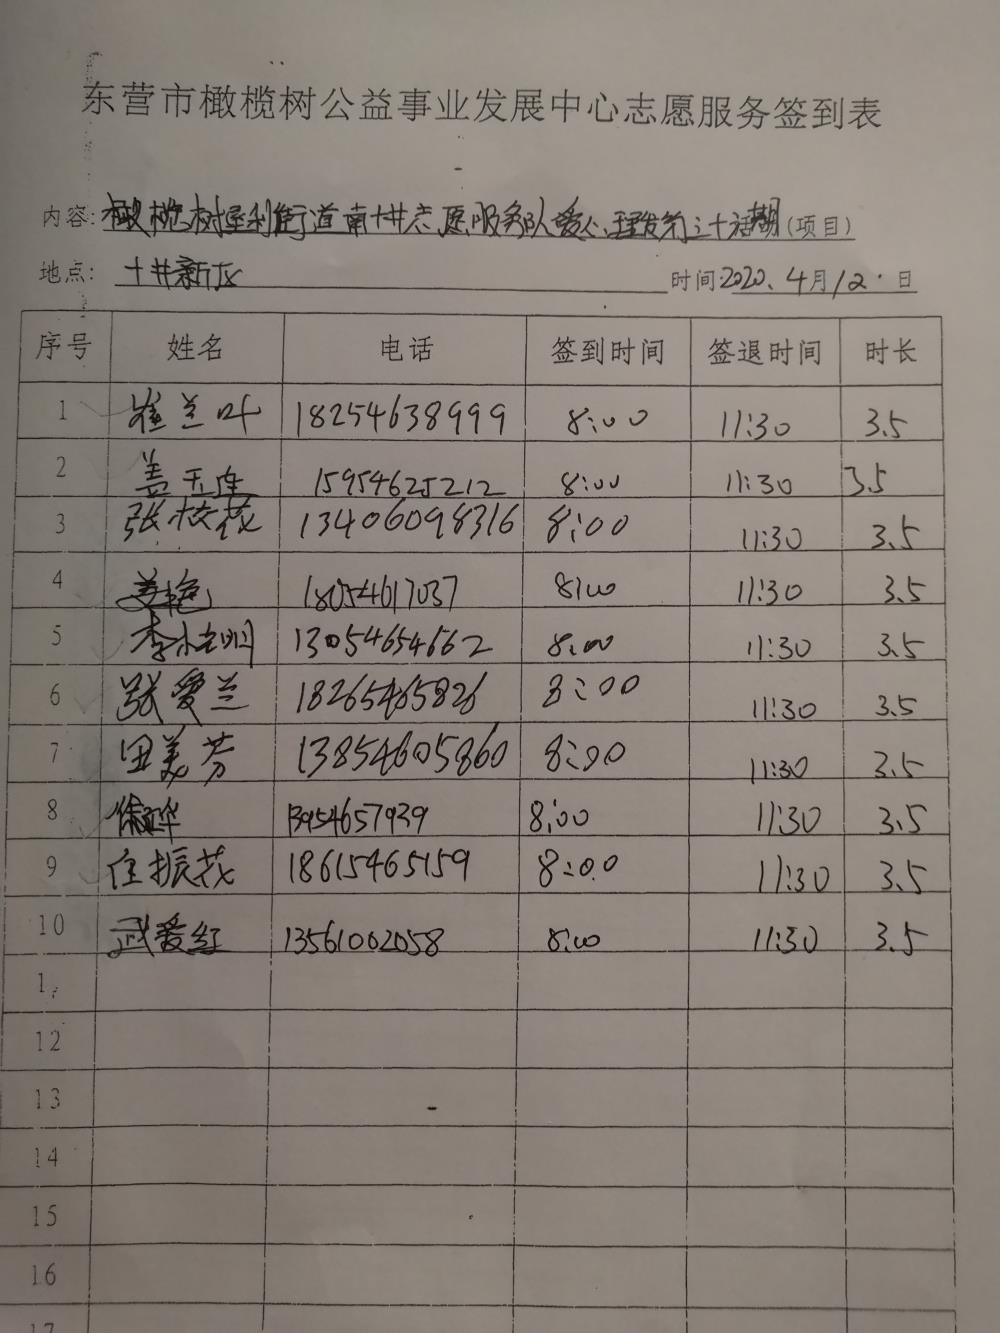 东营市橄榄树公益事业发展中心志愿服务签到表
内容:橄榄树垦利街道南十井志愿服务队爱心理发第二十话期(项目)
地点: 十井新区 时间:2020、4月12.日
序号 姓名 电话 签到时间 签退时间 时长
1 崔兰叶 18254638999 8:00 11:30 3.5
2 盖玉连 15954625212 8:00 11:30 3.5
3 张枝花 13406098316 8:00 11:30 3.5
4 姜艳 18054617037 8:00 11:30 3.5
5 李 13054654662 8:00 11:30 3.5
6 张爱兰 18265465826 8:00 11:30 3.5
7 田美芳 13854605860 8:00 11:30 3.5
8 徐 华 13954657939 8:00 11:30 3.5
9 任振花 18615465159 8:00 11:30 3.5
10 武爱红 13561002058 8:00 11:30 3.5
1
12
13
14
15
16
17